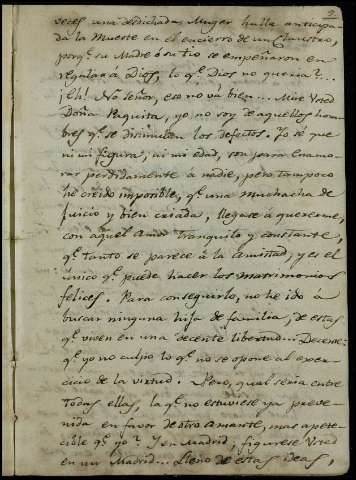 2
veces una desdichada Muger halla anticipa-
da la Muerte en el encierro de un Claustro,
porqe. su Madre ó su tio se empeñaron en
regalar á Dios, lo qe. Dios no queria?...
¡Eh! No señor, eso no vá bien... Mire Vsted
Doña Paquita, yo no soy de aquellos hom-
bres qe. se disimulan los defectos. Yo sé que
ni mi figura, ni mi edad, son para enamo-
rar perdidamente á nadie, pero tampoco
he creido imposible, qe. una muchacha de
juicio y bien criada, llegase á quererme,
con aquel amor tranquilo y constante,
qe. tanto se parece á la amistad, y es el
unico qe. puede hacer los matrimonios
felices. Para conseguirlo, no he ido á
buscar ninguna hija de familia, de estas
qe. viven en una decente libertad... Decente:
qe. yo no culpo lo qe. no se opone al exer-
cicio de la virtud. Pero, qual seria entre
todas ellas, la qe. no estuviese ya preve-
nida en favor de otro amante, mas apete-
cible qe. yo? Y en Madrid, figurese Vsted
en un Madrid... Lleno de estas ideas,